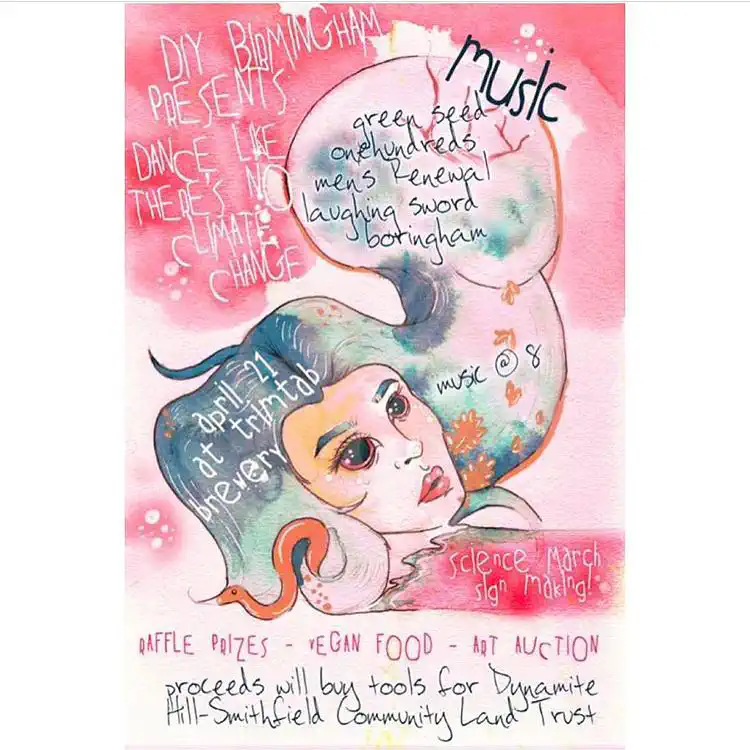 DIY BIRMINGHAM
PRESENTS
DANCE LIKE
THERE'S NO
CLIMATE
CHANGE
music
green seed
onehundreds
men's Renewal
laughing sword
boringham
music @ 8
april 21
at trimtab
brewery
science march
sign making!
RAFFLE PRIZES - VEGAN FOOD - ART AUCTION
proceeds will buy tools for Dynamite
Hill-Smithfield Community Land Trust